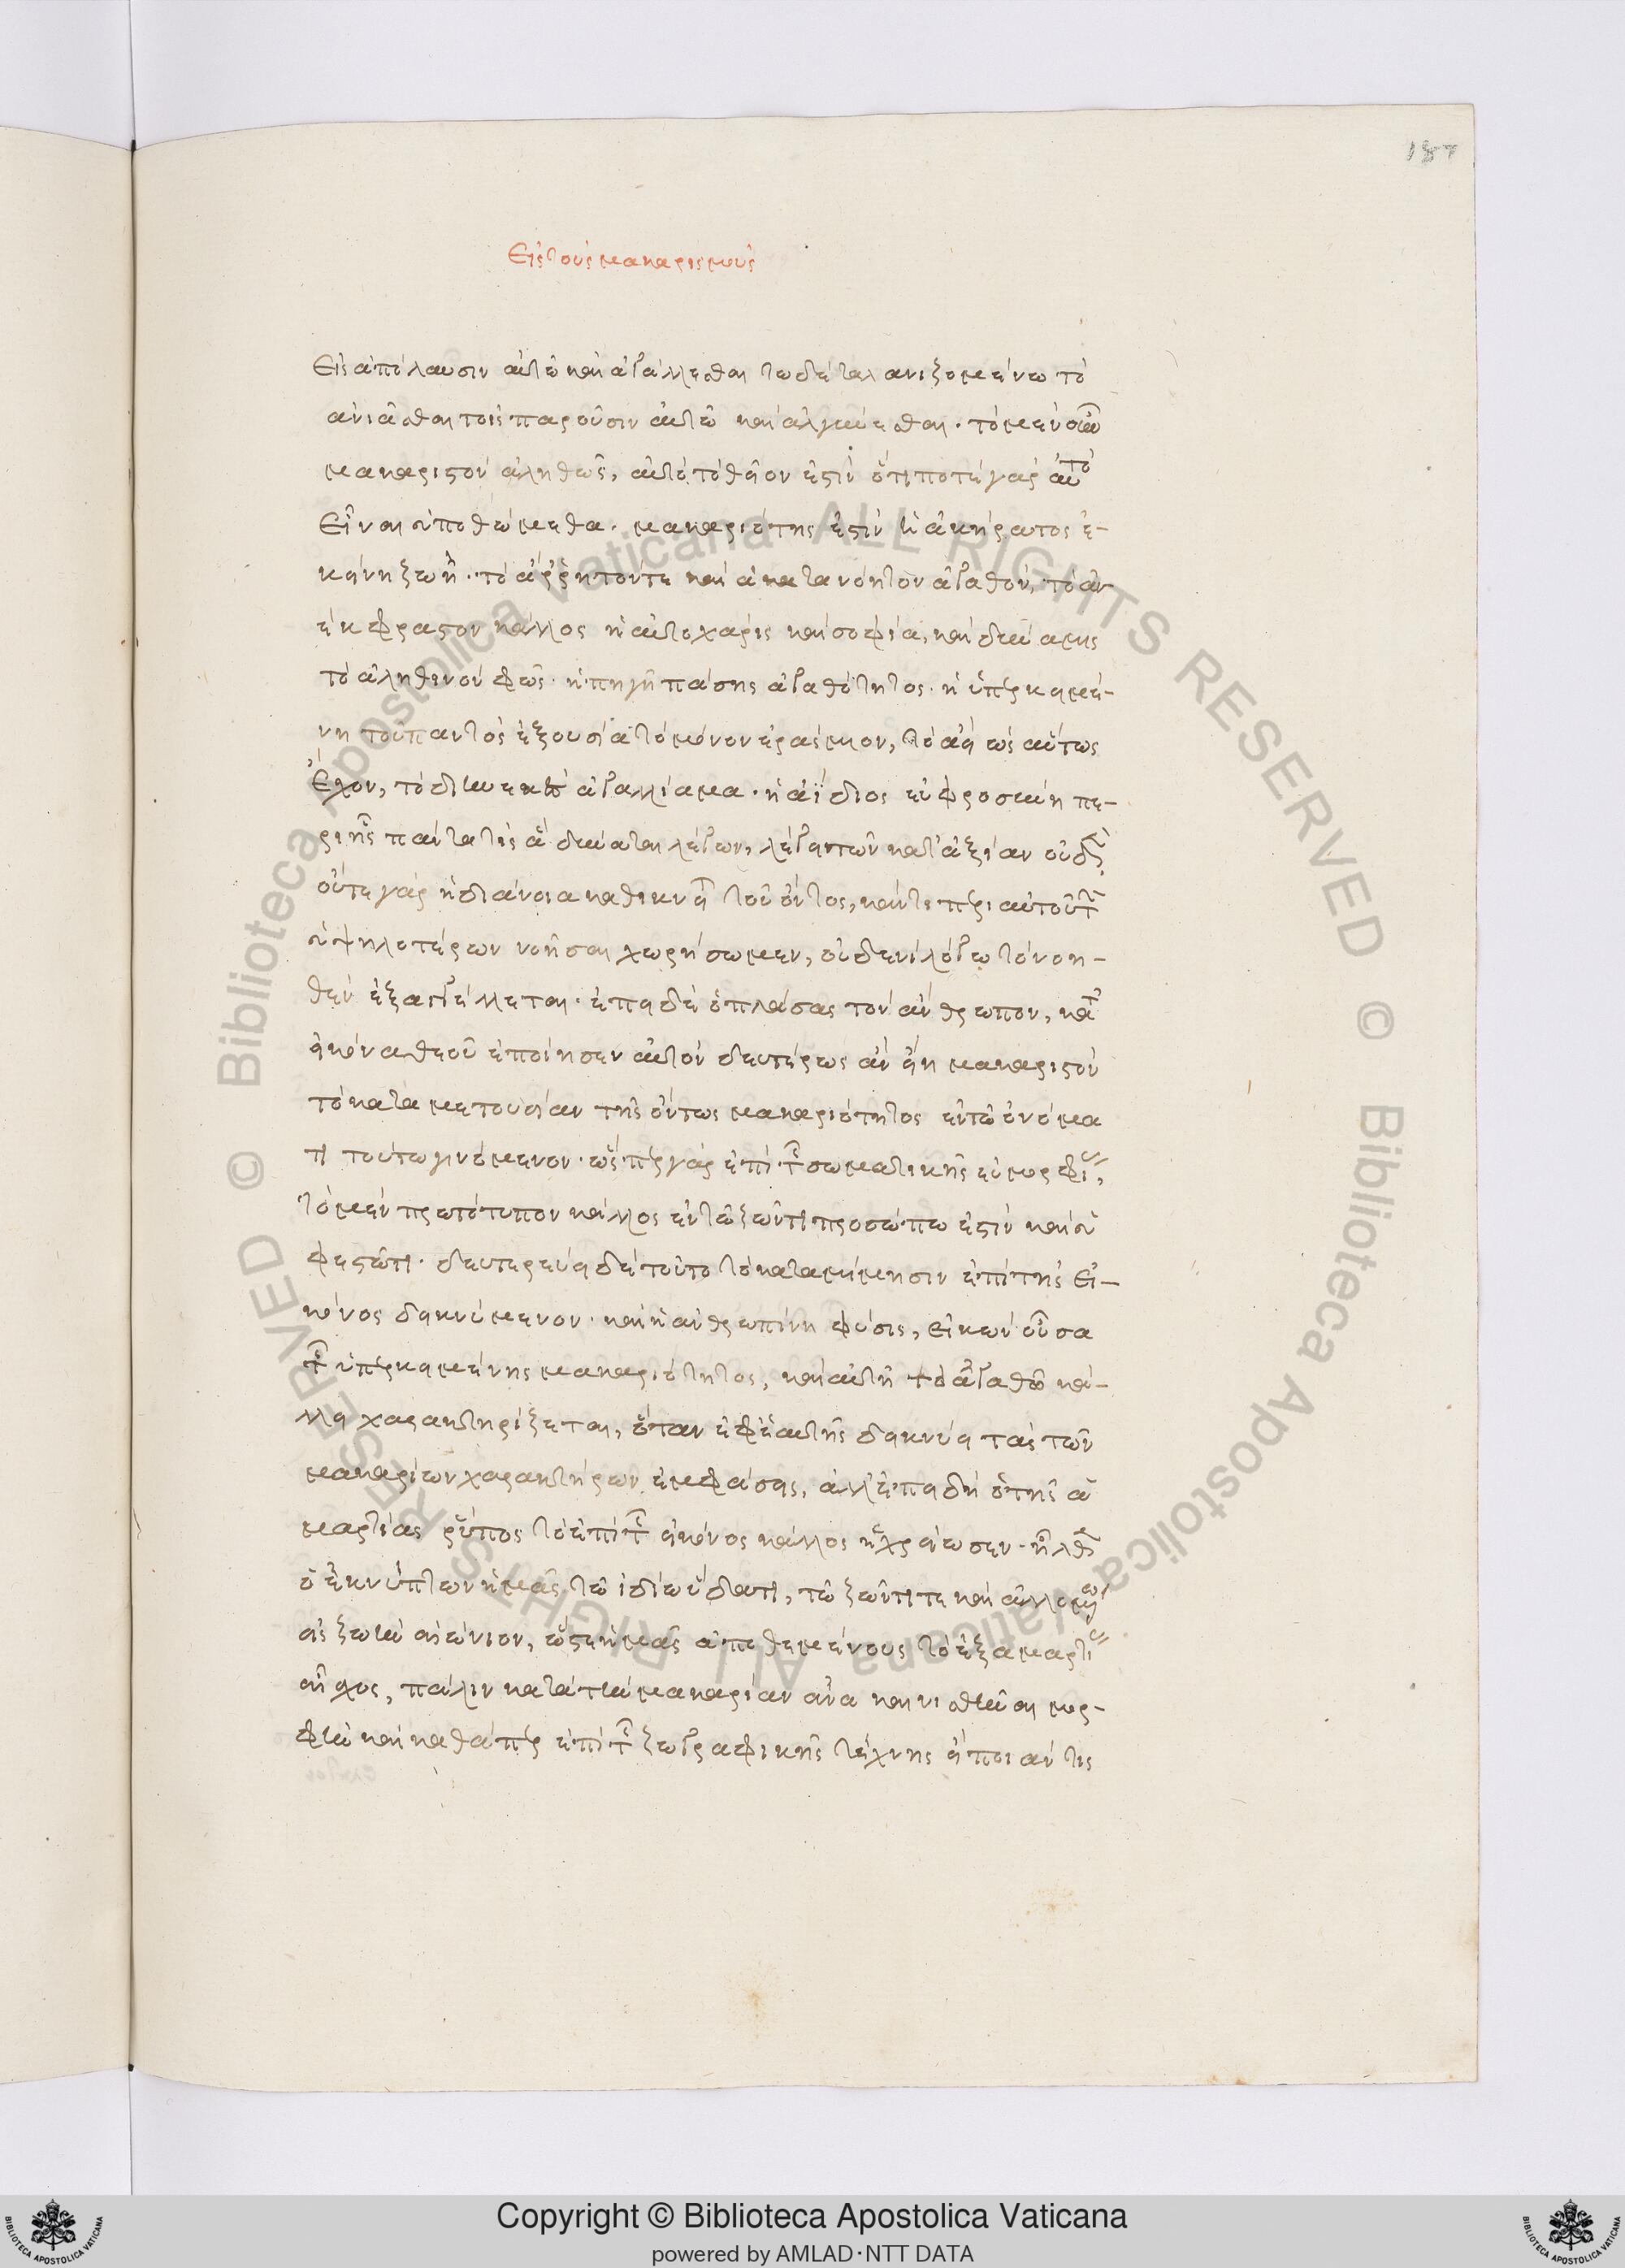 187
Εἰς τοὺς μακαρισμούς
εἰς ἀπόλαυσιν αὐτῶ καὶ ἀγάλλεσθαι τῶ δὲ ταλανιζομένω τὸ
ἀνιᾶσθαι τοῖς παροῦσιν αὐτῶ καὶ ἀλγύνεσθαι. τὸ μὲν οὖν
μακαριστὸν ἀληθῶς, αὐτὸ τὸ θεῖον ἐστὶν ὅτι ποτὲ γὰρ αὐτὸ
εἶναι ὑποθώμεθα. μακαριότης ἐστὶν ἡ ἀκήρατος ἐ-
κείνη ζωὴ. τὸ ἄρρητόν τε καὶ ἀκατανόητον ἀγαθὸν, τὸ ἀν
έκφραστον κάλλος ἡ αὐτοχάρις καὶ σοφία, καὶ δύναμις
τὸ ἀληθινὸν φῶς. ἡ πηγὴ πάσης ἀγαθότητος. ἡ ὑπερκειμέ-
νη τοῦ παντὸς ἐξουσία τὸ μόνον ἐράσμιον, τὸ ἀεὶ ὡσαύτως
ἔχον, τὸ διηνεκὲς ἀγαλλίαμα. ἡ ἀΐδιος εὐφροσύνη πε-
ρὶ ἧς πάντα τὶς ἃ δύναται λέγων, λέγει τῶν κατ' ἀξίαν οὐδέν
οὔτε γὰρ ἡ διάνοια καθικνεῖται τοῦ ὄντος, κἄν τι περὶ αὐτοῦ τῶν
ὑψηλοτέρων νοῆσαι χωρήσωμεν, οὐδενὶ λόγω τὸ νοη-
θὲν ἐξαγγέλλεται. ἐπεὶ δὲ ὁ πλάσας τὸν ἄνθρωπον, κατ'
εἰκόνα θεοῦ ἐποίησεν αὐτὸν δευτέρως ἂν εἴη μακαριστὸν
τὸ κατὰ μετουσίαν τῆς ὄντως μακαριότητος ἐν τῶ ὀνόμα
τι τούτω γινόμενον. ὥσπερ γὰρ ἐπὶ τῆς σωματικῆς εὐμορφίας,
τὸ μὲν πρωτότυπον κάλλος ἐν τῶ ζῶντι προσώπω ἐστὶν καὶ ὑ
φεστῶτι. δευτερεύει δὲ τούτο τὸ κατὰ μίμησιν ἐπὶ τῆς εἰ-
κόνος δεικνύμενον. καὶ ἡ ἀνθρωπίνη φύσις, εἰκὼν οὖσα
τῆς ὑπερκειμένης μακαριότητος, καὶ αὐτὴ τὸ ἀγαθοῦ κά-
λλει χαρακτηρίζεται, ὅταν ἐφ' ἑαυτῆς δεικνύει τὰς τῶν
μακαρίων χαρακτήρων ἐμφάσεις, ἀλλ' ἐπειδὴ ὁ τῆς ἁ
μαρτίας ρύπος τὸ ἐπὶ τῆς εἰκόνος κάλλος ἠχρείωσεν. ἦλθεν
ὁ ἐκνύπτων ἡμᾶς τῶ ἰδίω ὕδατι, τῶ ζῶντι τε καὶ ἁλλομένω
εἰς ζωὴν αἰώνιον, ὥστε ἡμᾶς ἀποθεμένους τὸ ἐξ ἁμαρτίας
αἶσχος, πάλιν κατὰ τὴν μακαρίαν ἀνακαινισθῆναι μορ-
φὴν καὶ καθάπερ ἐπὶ τῆς ζωγραφικῆς τέχνης εἴποι ἄν τις
Copyright © Biblioteca Apostolica Vaticana
powered by AMLAD·NTT DATA